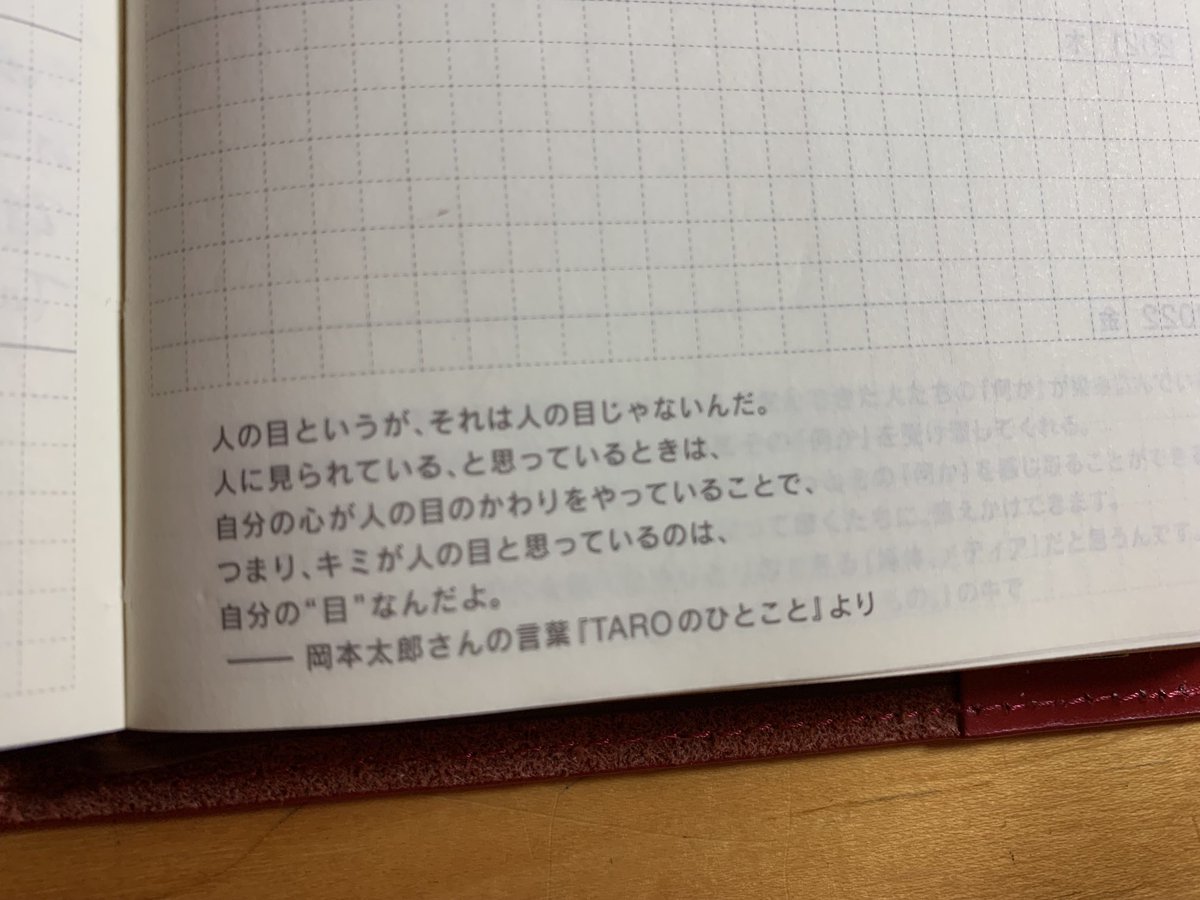 人の目というが、それは人の目じゃないんだ。
人に見られている、と思っているときは、
自分の心が人の目のかわりをやっていることで、
つまり、キミが人の目と思っているのは、
自分の“目”なんだよ。
—— 岡本太郎さんの言葉『TAROのひとこと』より